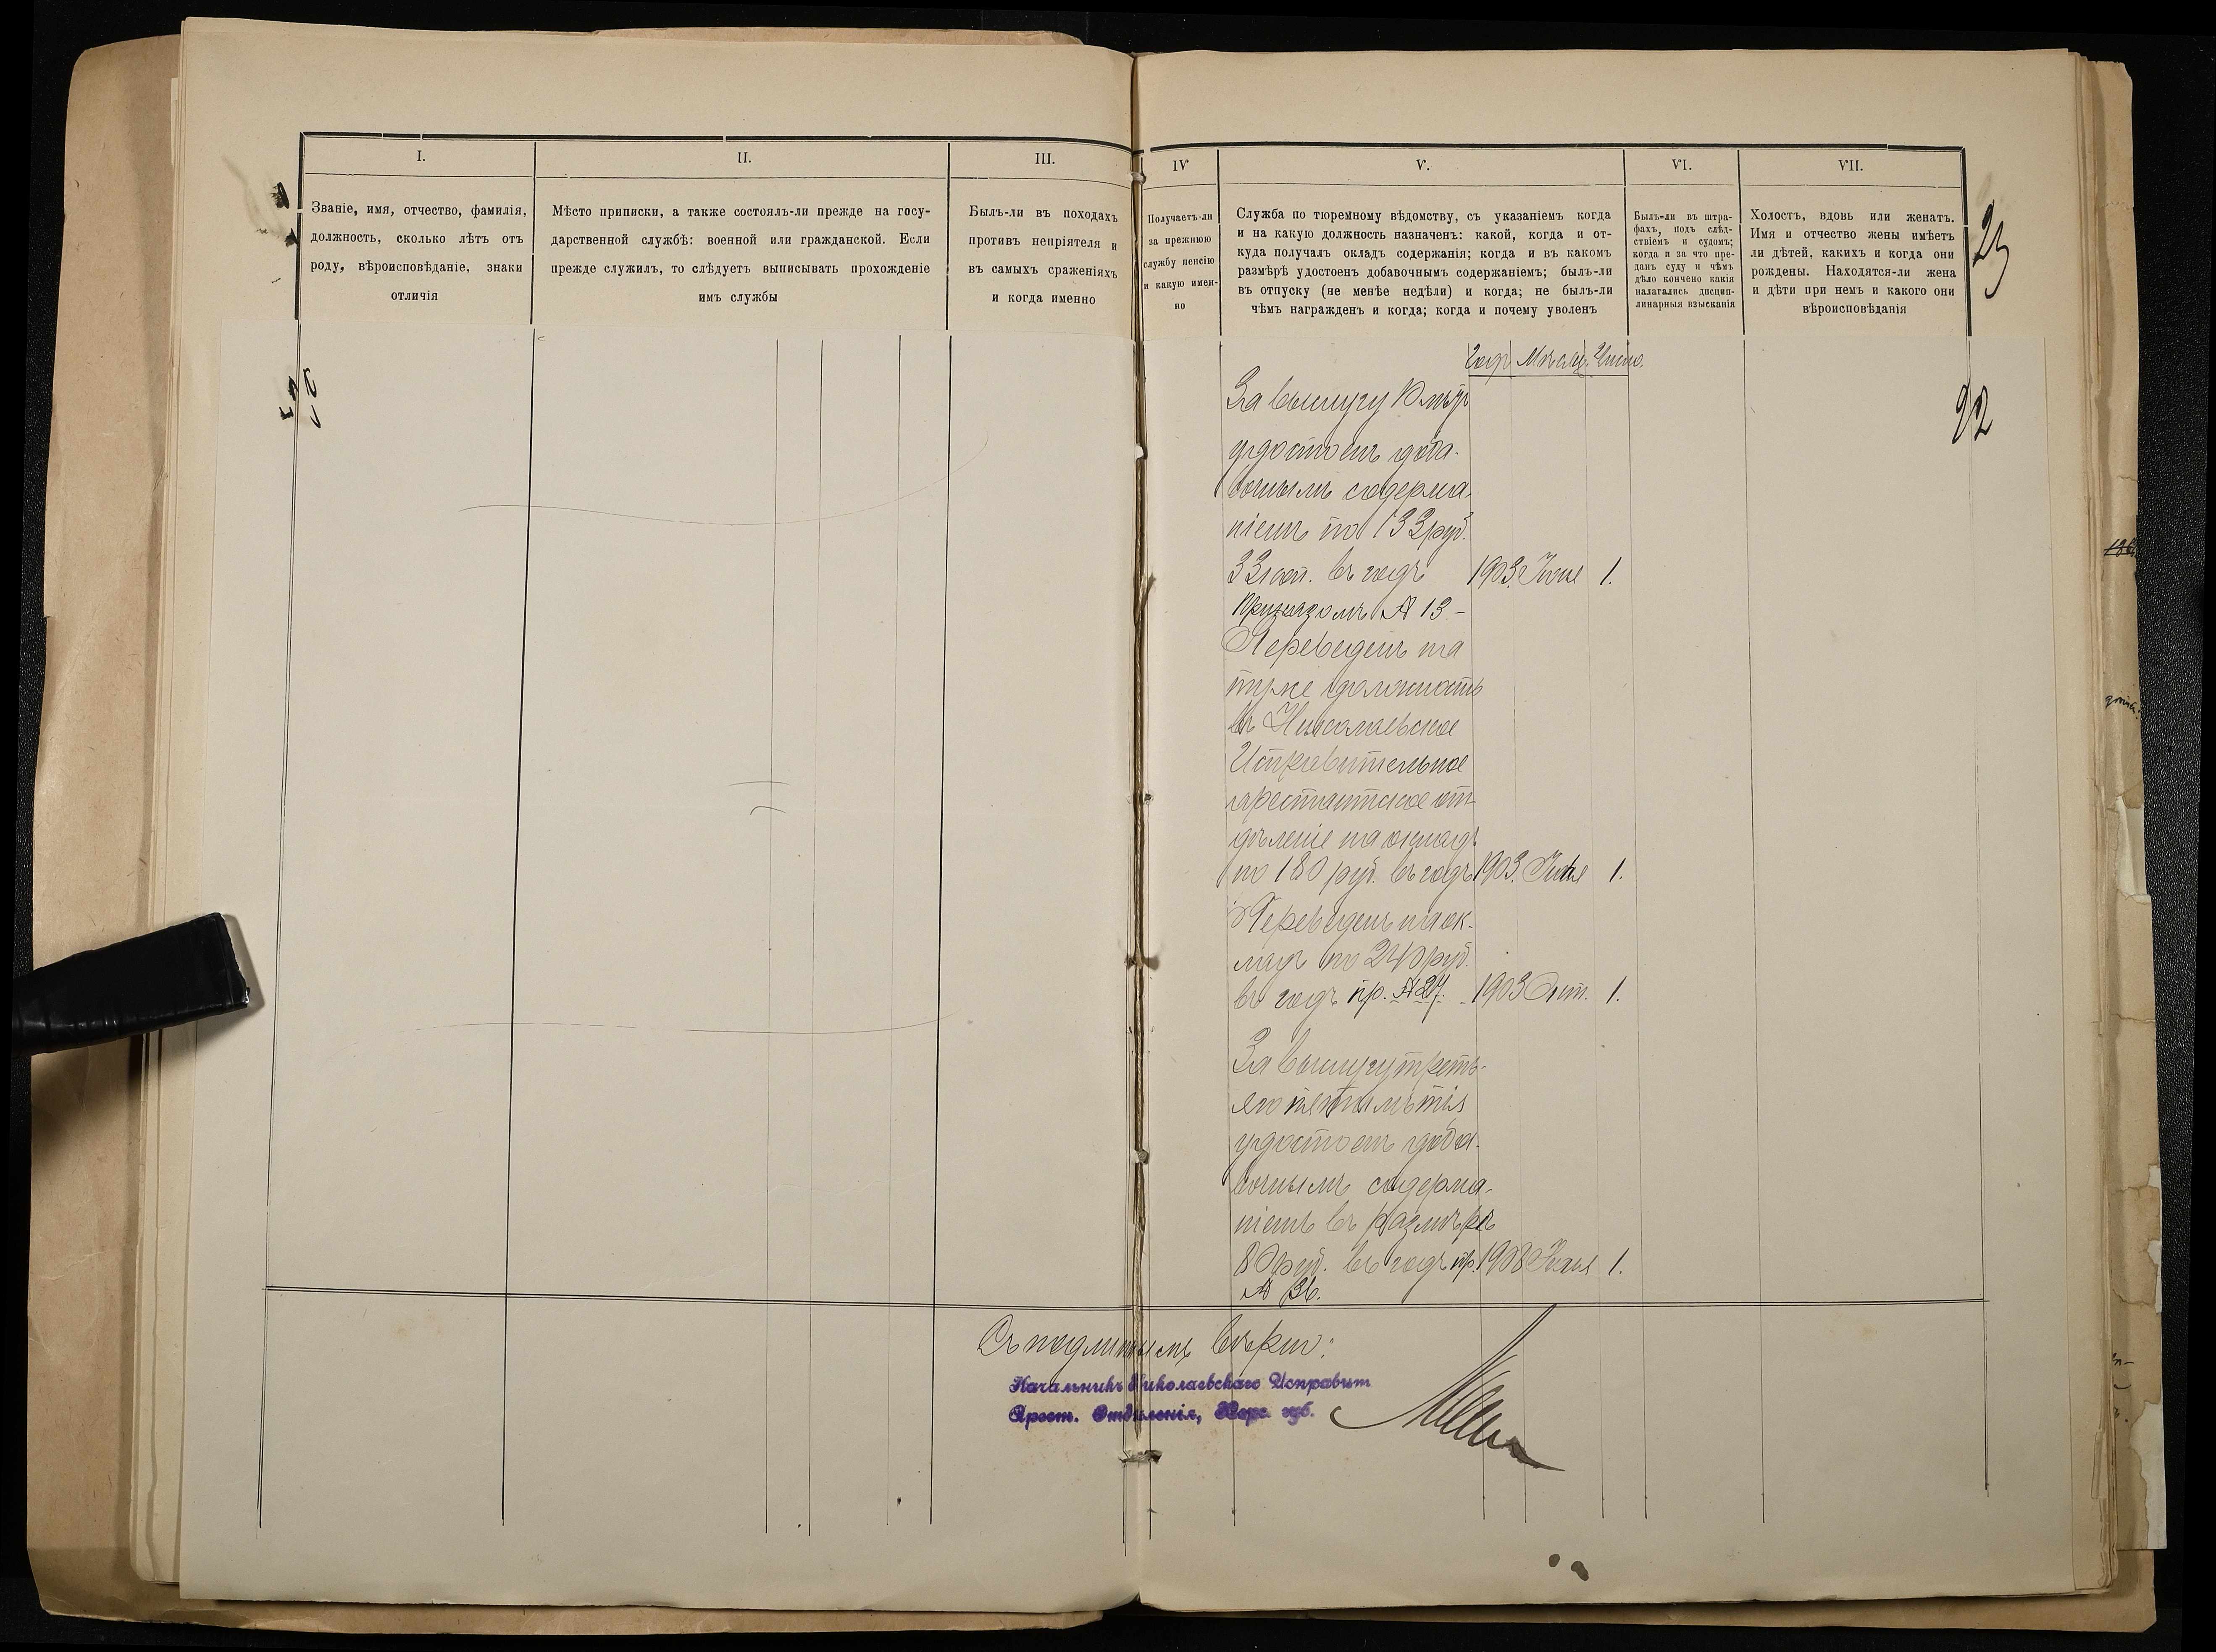 I.
Званіе, имя, отчество, фамилія,
должность, сколько лѣтъ отъ
роду, вѣроисповѣданіе, знаки
отличія
II.
Мѣсто приписки, а также состоялъ-ли прежде на госу-
дарственной службѣ: военной или гражданской. Если
прежде служилъ, то слѣдуетъ выписывать прохожденіе
имъ службы
III.
Былъ-ли въ походахъ
противъ непріятеля и
въ самыхъ сраженіяхъ
и когда именно
IV
Получаетъ-ли
за прежнюю
службу пенсію
и какую имен-
но
V.
Служба по тюремному вѣдомству, съ указаніемъ когда
и на какую должность назначенъ: какой, когда и от-
куда получалъ окладъ содержанія; когда и въ какомъ
размѣрѣ удостоенъ добавочнымъ содержаніемъ; былъ-ли
въ отпуску (не менѣе недѣли) и когда; не былъ-ли
чѣмъ награжденъ и когда; когда и почему уволенъ
VI.
Былъ-ли въ штра-
фахъ, подъ слѣд-
ствіемъ и судомъ;
когда и за что пре-
данъ суду и чѣмъ
дѣло кончено какія
налагались дисцип-
линарныя взысканія
VII.
Холостъ, вдовъ или женатъ.
Имя и отчество жены имѣетъ
ли дѣтей, какихъ и когда они
рождены. Находятся-ли жена
и дѣти при немъ и какого они
вѣроисповѣданія
23
92
Годъ Мѣсяц. Число.
За выслугу 10 лѣтъ
удостоенъ доба-
вочнымъ содержа-
ніемъ по 133 руб.
33 коп. въ годъ 1903. Іюня 1.
приказомъ № 13-
Переведенъ на
туже должность
въ Николаевское
Исправительное
арестантское от-
дѣленіе на окладъ
по 180 руб. въ годъ 1903. 1.
Переведенъ на ок-
ладъ по 240 руб.
въ годъ пр. № 27. 1903 Окт. 1.
За выслугу треть-
яго пятилѣтія
удостоенъ доба-
вочнымъ содержа-
ніемъ въ размѣрѣ
80 руб. въ годъ пр. 1908 1.
№ 36.
Съ подлиннымъ вѣрно:
Начальникъ Николаевскаго Исправит
Арест. Отдѣленія, Херс. губ.